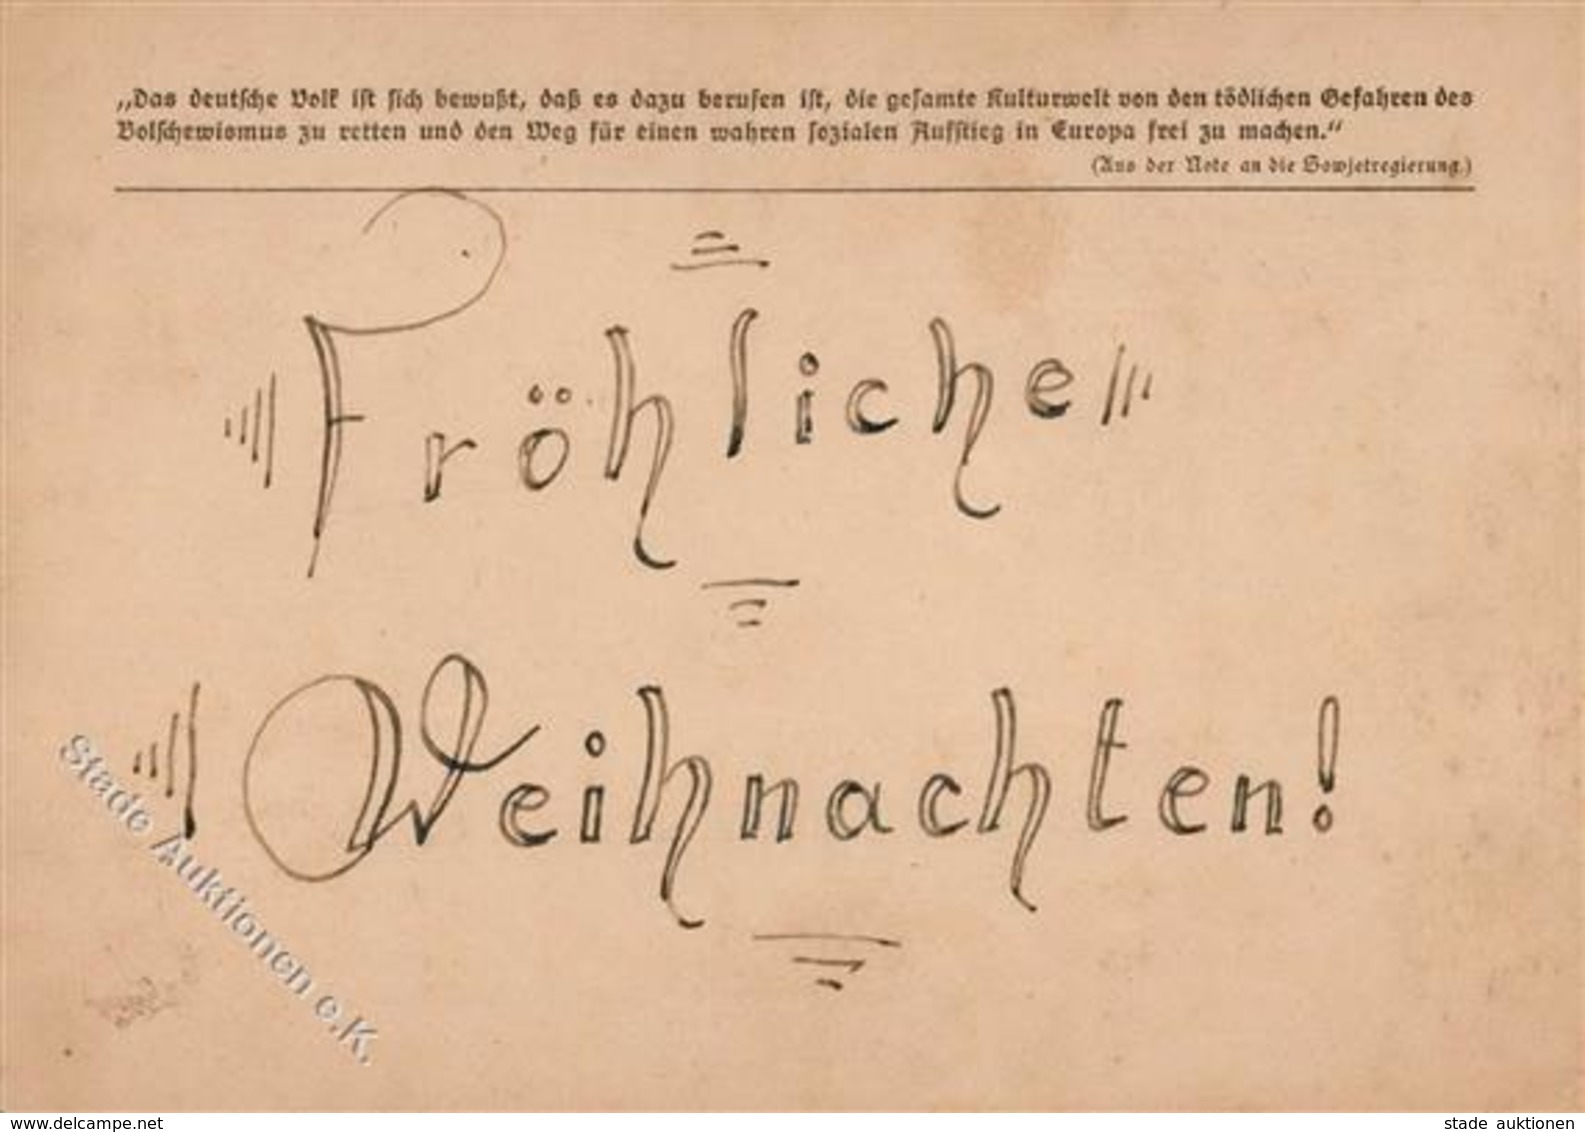 „Das deutsche Volk ist sich bewußt, daß es dazu berufen ist, die gesamte Kulturwelt von den tödlichen Gefahren des
Bolschewismus zu retten und den Weg für einen wahren sozialen Aufstieg in Europa frei zu machen.“
(Aus der Note an die Sowjetregierung.)
Fröhliche
Weihnachten!
Stade Auktionen e.K.
www.delcampe.net
stade auktionen